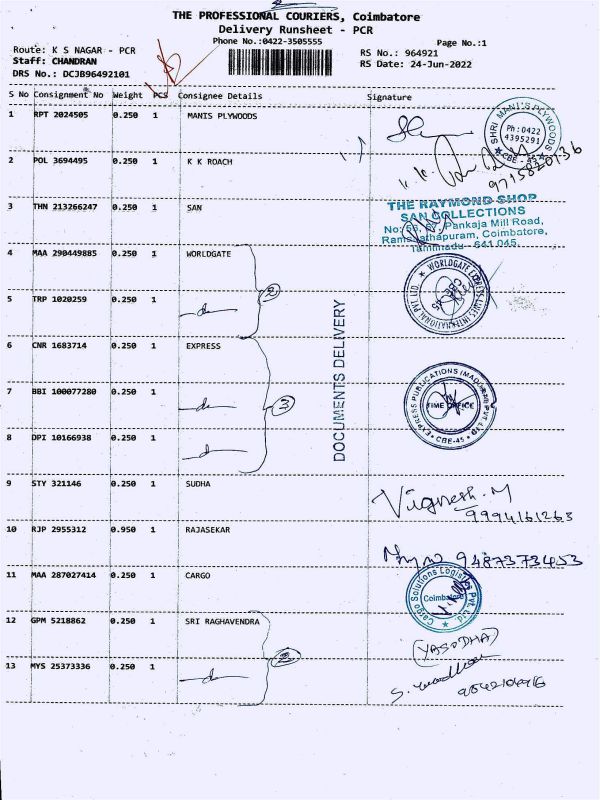 THE PROFESSIONAL COURIERS, Coimbatore
Delivery Runsheet - PCR
Phone No.:0422-3505555
Page No.:1
Route: K S NAGAR - PCR
RS No.: 964921
Staff: CHANDRAN
RS Date: 24-Jun-2022
DRS No.: DCJB96492101
S No Consignment No Weight PCS Consignee Details Signature
1 RPT 2024505 0.250 1 MANIS PLYWOODS
SHRI MANI'S PLYWOODS
Ph:0422
4395291
CBE - 45
2 POL 3694495 0.250 1 K K ROACH
9715820136
3 THN 213266247 0.250 1 SAN
THE RAYMOND SHOP
SAN COLLECTIONS
Pankaja Mill Road,
Ramanathapuram, Coimbatore,
Tamilnadu - 641 045.
4 MAA 290449885 0.250 1 WORLDGATE
2
WORLDGATE EXPRESS LINES INTERNATIONAL PVT. LTD.
CBE - 45
5 TRP 1020259 0.250 1
DOCUMENTS DELIVERY
6 CNR 1683714 0.250 1 EXPRESS
7 BBI 100077280 0.250 1
3
EXPRESS PUBLICATIONS (MADURAI) PVT LTD
TIME OFFICE
CBE-45
8 DPI 10166938 0.250 1
9 STY 321146 0.250 1 SUDHA
Vignesh. M
9994161263
10 RJP 2955312 0.950 1 RAJASEKAR
9487373453
11 MAA 287027414 0.250 1 CARGO
Cargo Solutions Logistics Pvt. Ltd.
Coimbatore
12 GPM 5218862 0.250 1 SRI RAGHAVENDRA
(YASODHA)
13 MYS 25373336 0.250 1
2